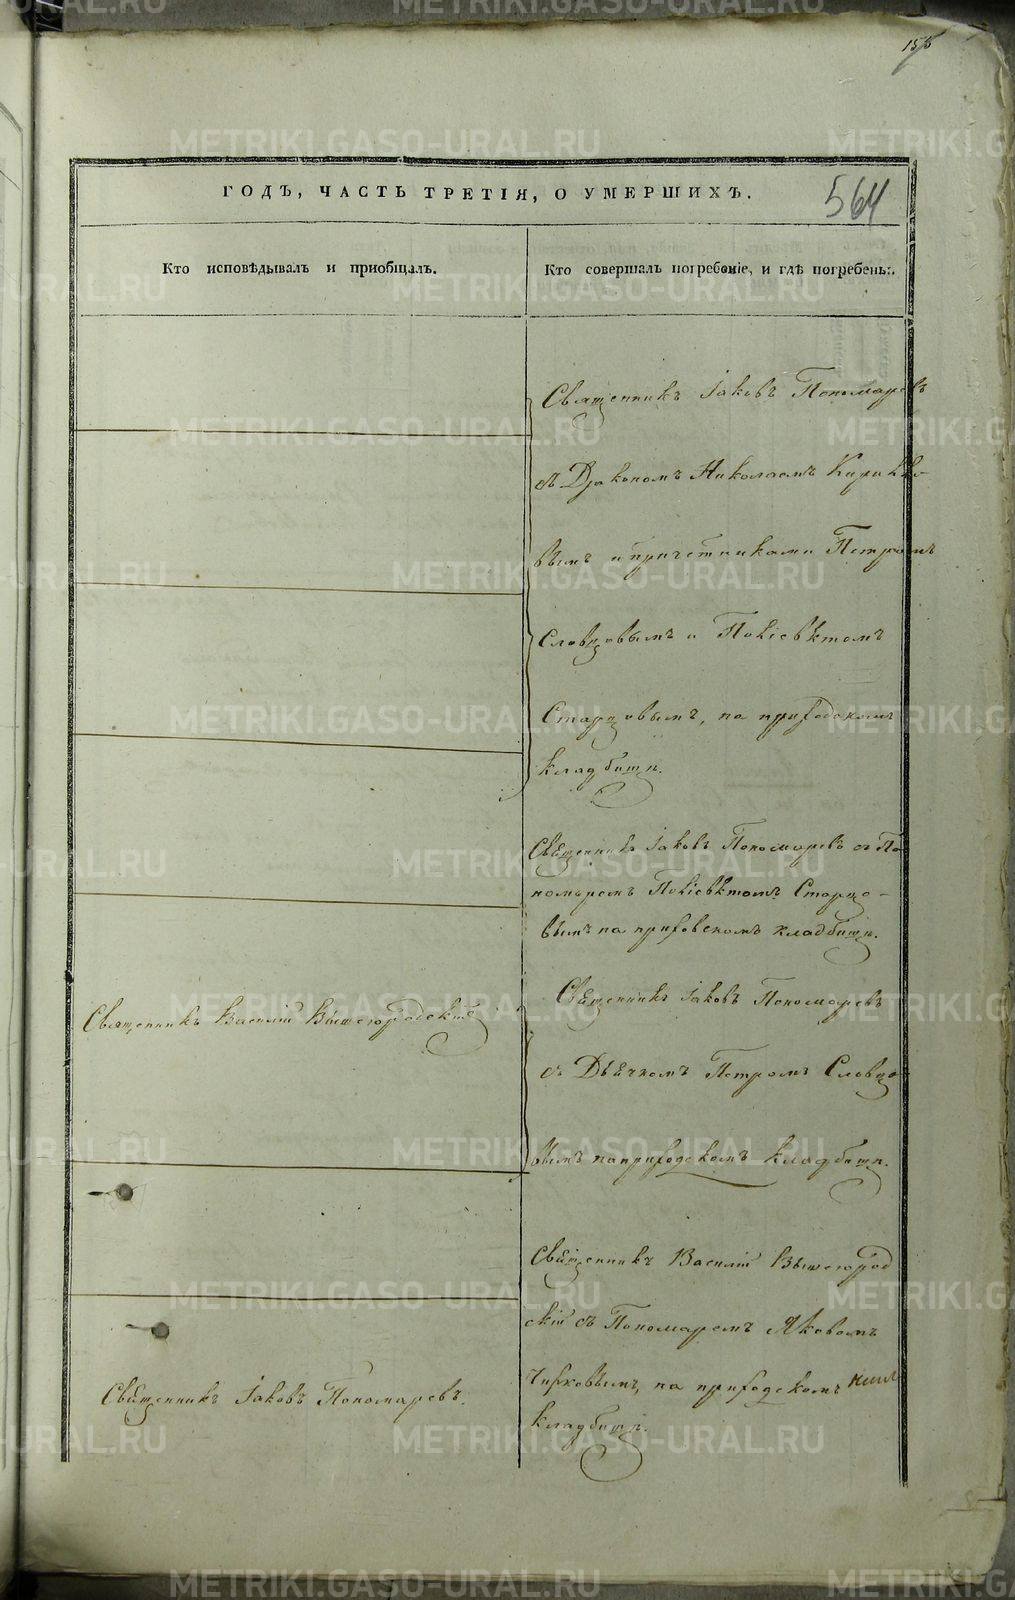 155
ГОДЪ, ЧАСТЬ ТРЕТІЯ, О УМЕРШИХЪ.
564
Кто исповѣдывалъ и пріобщалъ.
Кто совершалъ погребеніе, и гдѣ погребены.
Священникъ Іаковъ Пономаревъ
съ Діакономъ Николаемъ
вымъ и причетниками Петромъ
Словцовымъ и Поліевктомъ
Старцовымъ, на приходскомъ
кладбищѣ.
Священникъ Іаковъ Пономаревъ съ По
номаремъ Поліевктомъ Старцо-
вымъ на приходскомъ кладбищѣ.
Священникъ Василій Вышегородскій
Священникъ Іаковъ Пономаревъ
съ Дьячкомъ Петромъ Словцо-
вымъ на приходскомъ кладбищѣ.
Священникъ Василій Вышегород
скій съ Пономаремъ Яковомъ
Священникъ Іаковъ Пономаревъ.
Чирковымъ, на приходскомъ
кладбищѣ.
METRIKI.GASO-URAL.RU